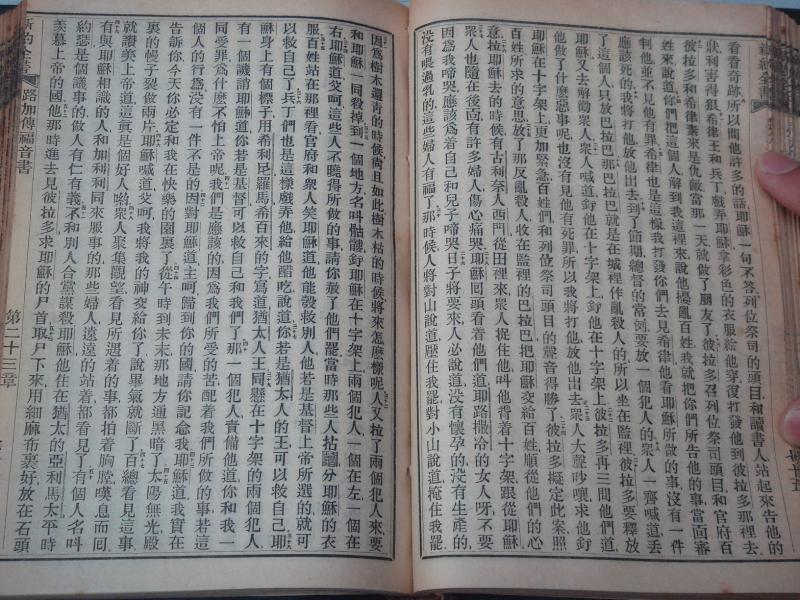 看看奇跡所以問他許多的話耶穌一句不答列位祭司的頭目和讀書人站起來告他的
狀利害得狠希律王和兵丁戲弄耶穌拿彩色的衣服給他穿復打發他到彼拉多那裡去
彼拉多和希律素來是仇敵當那一天就做了朋友了彼拉多召列位祭司頭目和官府百
姓來說道你們把這個人解到我這裡來說他擾亂百姓我就把你們所告他的事當面審
判他並不見他有罪希律也是這樣我打發你們去見希律他看耶穌所做的事沒有一件
應該死的我將打他放他出去到了節期總督的當例要放一個犯人的衆人一齊喊道丢
了這個人只放巴拉巴那巴拉巴就是在城裡作亂殺人的所以坐在監裡彼拉多要釋放
耶穌又去解勸衆人衆人喊道釘他在十字架上釘他在十字架上彼拉多再三問他們道
他做了什麽惡事呢也沒有見他有死罪所以我將打他放他出去衆人大聲吵嚷求他釘
耶穌在十字架上更加緊急百姓們和列位祭司頭目的聲音得勝了彼拉多擬定此案照
百姓所求的意思放了那反亂殺人收在監裡的巴拉巴把耶穌交給百姓順從他們的心
意拉耶穌去的時候有古利奈人西門從田裡來衆人捉住他叫他背着十字架跟從耶穌
衆人也隨在後面有許多婦人傷心痛哭耶穌回頭看着他們道耶路撒冷的女人呀不要
因爲我啼哭應該爲着自己和兒子啼哭日子將要來人必定說道没有懷孕的没有生產的
没有喂過乳的這些婦人有福了那時候人將對山說道壓住我罷對小山說道掩住我罷
因爲樹木還青的時候尚且如此樹木枯的時候將來怎麽樣呢人又拉了兩個犯人來要
和耶穌一同殺掉到一個地方名叫骷髏釘耶穌在十字架上兩個犯人一個在左一個在
右耶穌道父呵這些人不曉得所做的事請你赦了他們罷當時那些人拈鬮分耶穌的衣
服百姓站在那裡看官府和衆人笑耶穌道他能彀救別人他若是基督上帝所選的就可
以救自己了兵丁們也是這樣戲弄他給他醋吃說道你若是猶太人的王可以救自己耶
穌身上有個標子用希利尼羅馬希百來的字寫道猶太人王同懸在十字架的兩個犯人
有一個譏誚耶穌道你若是基督可以救自己和我們了那一個犯人責備他道你和我一
同受罪爲什麽不怕上帝呢我們是應該的因爲我們所受的苦配着我們所做的事若這
個人的行爲没有一件不是的因對耶穌道主呵歸到你的國請你記念我耶穌道我實在
告訴你今天你必定和我在快樂的園裏了從午時到未末那地方通黑暗了太陽無光殿
裏的幔子裂做兩片耶穌喊道父呵我將我的神交給你了說畢氣就斷了百總看見這事
就讚美上帝道這眞是個好人喲衆人聚集觀望看見所遇着的事都拍着胸膛嘆息而回
有與耶穌相識的人和加利利同來服事的那些婦人遠遠的站着都看見了有個人名叫
約瑟是個議事的做人有仁有義不和別人合黨謀殺耶穌他住在猶太的亞利馬太平時
羨慕上帝的國他那時進去見彼拉多求耶穌的尸首取尸下來用細麻布裹好放在石頭
新約全書 路加傳福音書 第二十三章